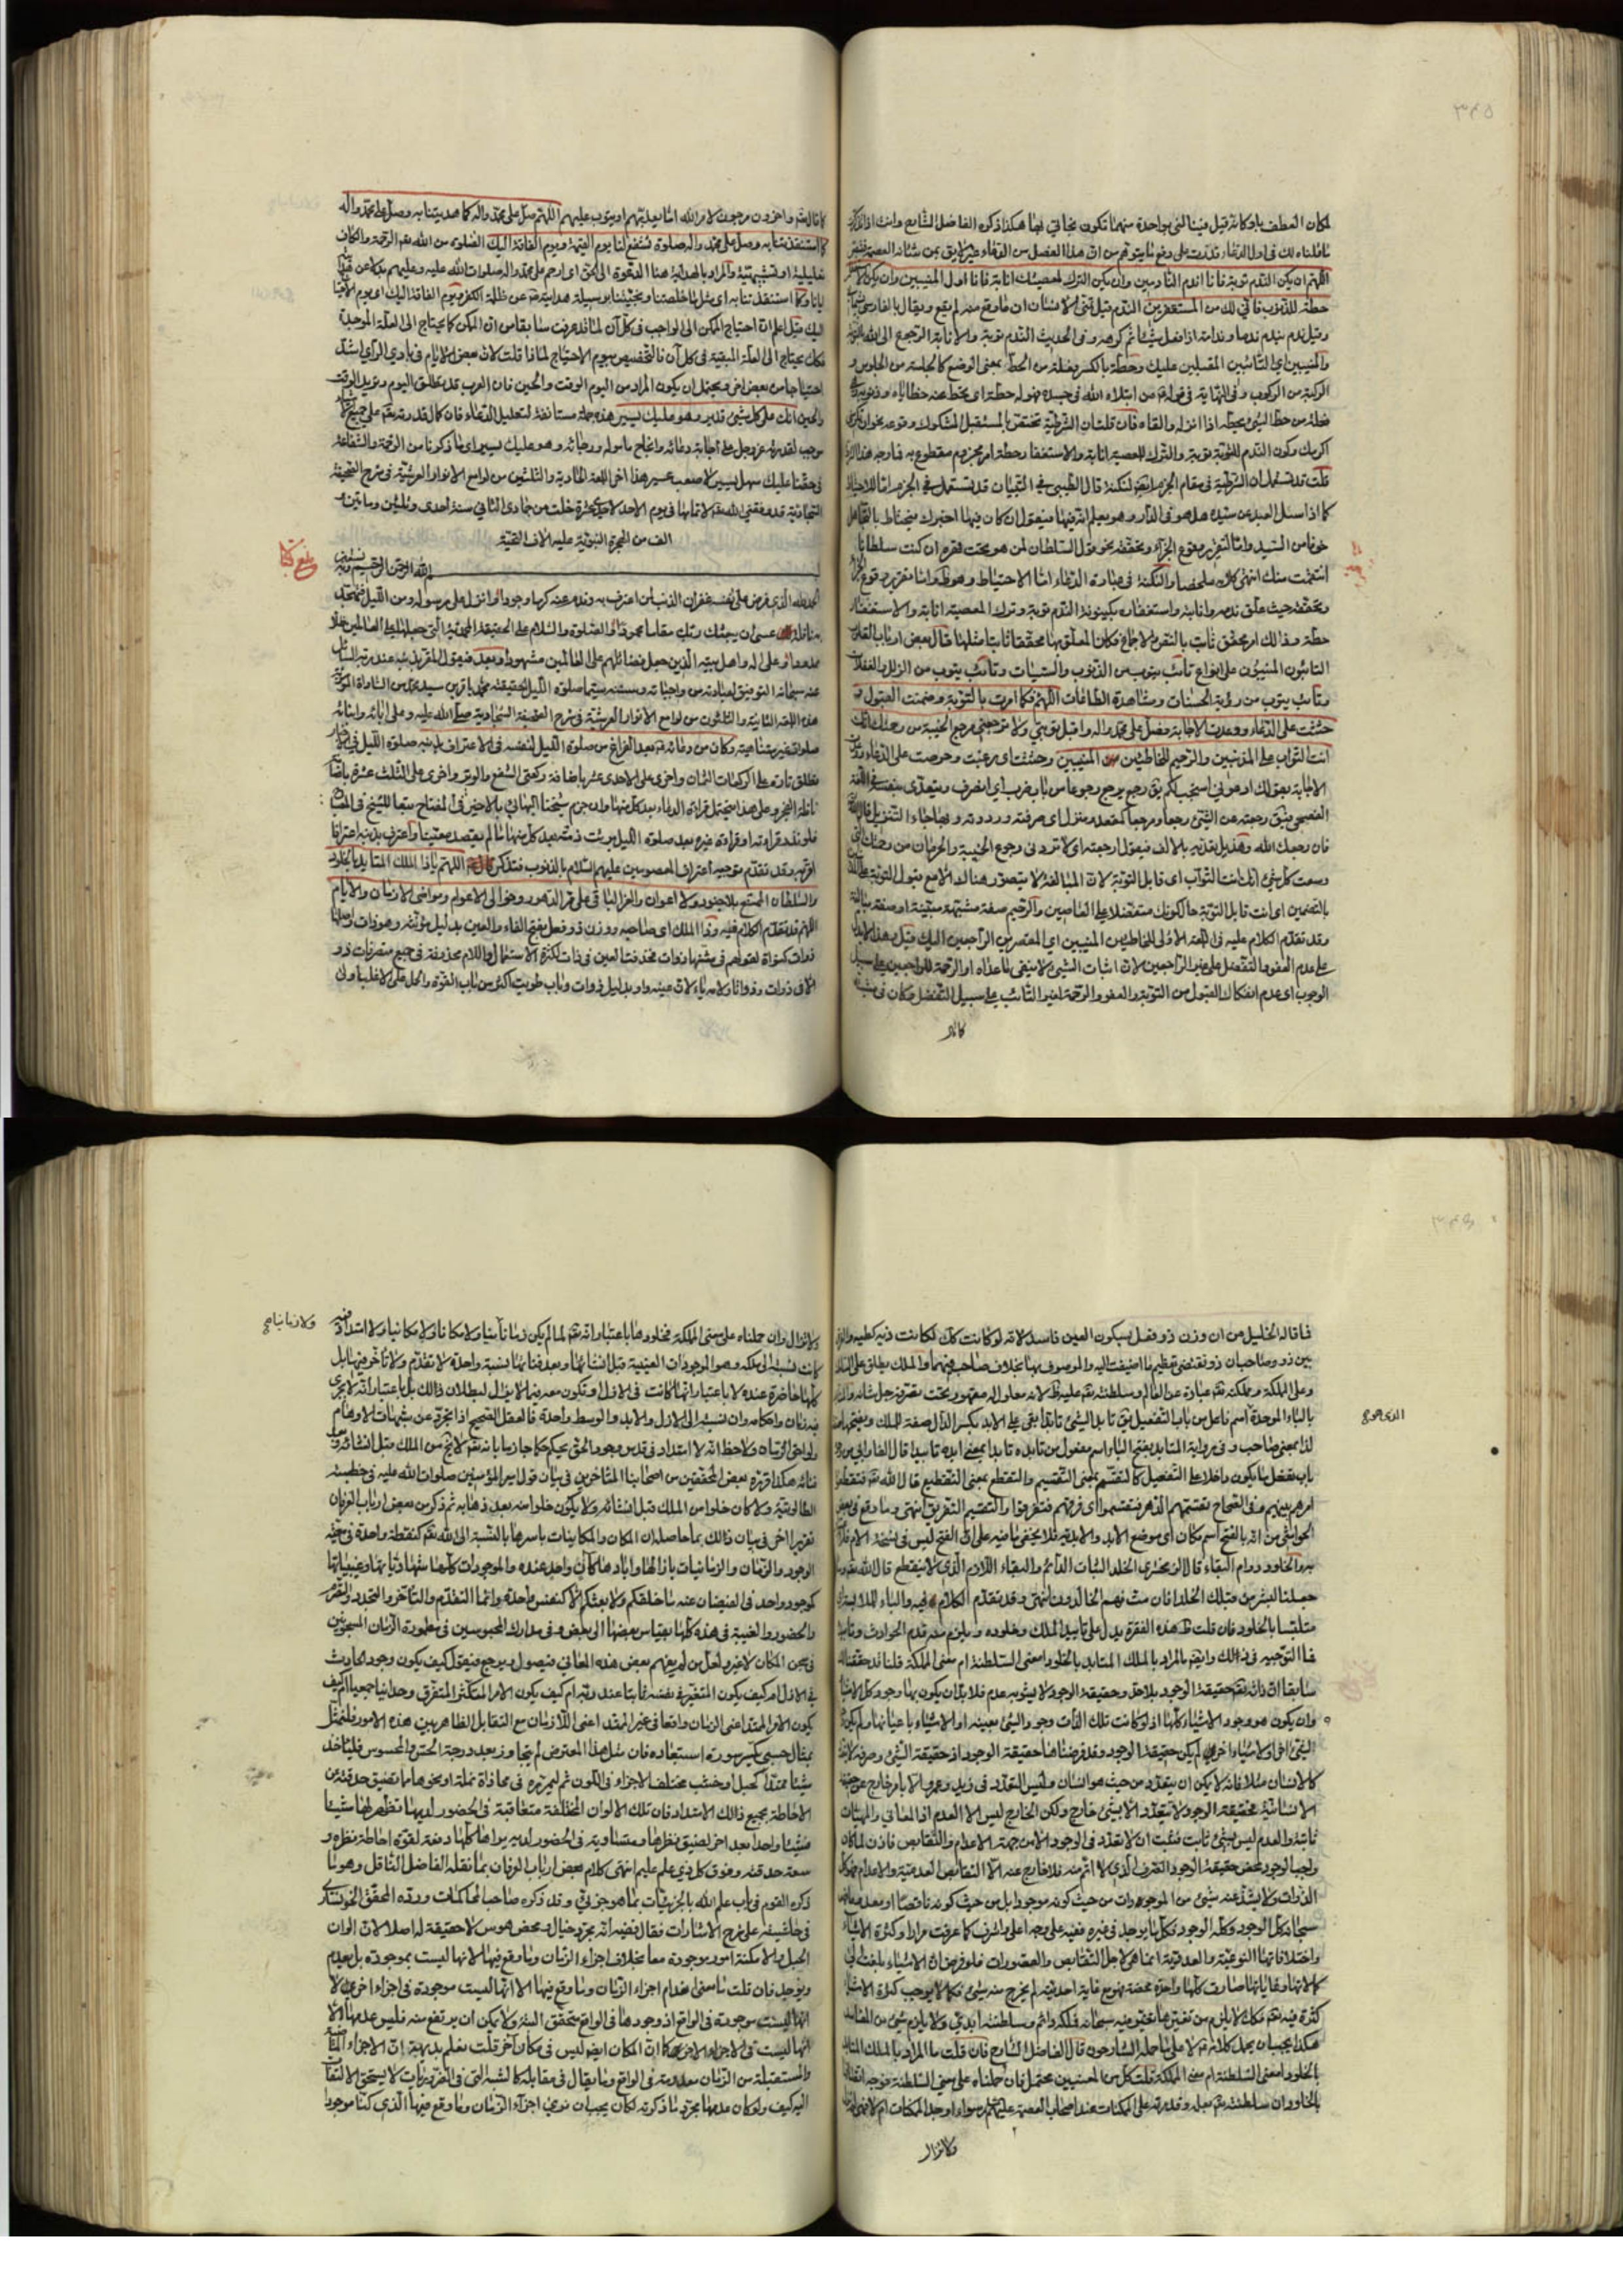 ٣٤٥
لمكان العطف باو كانه قيل فبنا لشي بواحدة منهما تكون نجاتي لا بهما هكذا ذكره الفاضل الشارح وانت اذا تذكرت
ما قلناه لك في اول الدعاء قدرت على دفع ما يتوهم من ان هذا الفصل من الدعاء غير لايق بمن شانه العصمة
اللهم ان يكن الندم توبة فانا اندم النادمين وان يكن الترك لمعصيتك انابة فانا اول المنيبين وان يكن الاستغفار
حطة للذنوب فاني لك من المستغفرين الندم قيل تمني الانسان ان ما وقع منه لم يقع ويقال بالفارسي
وقيل ندم يندم ندما وندامة اذا فعل شيئا ثم كرهه وفي الحديث الندم توبة والانابة الرجوع الى الله بالتوبة
والمنيبين اي التائبين المقبلين عليك وحطة بالكسر فعلة من الحط بمعنى الوضع كالجلسة من الجلوس و
الركبة من الركوب وفي النهاية في قوله من ابتلاه الله في جسده فهو له حطة اي يحط عنه خطاياه وذنوبه
فعلة من حط الشيء يحطه اذا انزله والقاه فان قلت ان الشرطية تختص بالمستقبل المشكوك وقوعه نحو ان تكرمني
اكرمك وكون الندم للتوبة توبة والترك للمعصية انابة والاستغفار حطة امر مجزوم مقطوع به فما وجه هذا
قلت قد تستعمل ان الشرطية في مقام الجزم لنكتة قال الطيبي في التبيان قد تستعمل في الجزم اما للاحتياط
كما اذا سئل العبد عن سيده هل هو في الدار وهو يعلم انه فيها فيقول ان كان فيها اخبرك فيحتاط بالتجاهل
خوفا من السيد واما لتقرير وقوع الجزاء وتحققه نحو قول السلطان لمن هو تحت قهره ان كنت سلطانا
انتقمت منك انتهى كلامه ملخصا والنكتة في عبارة الدعاء اما الاحتياط وهو ظ واما تقرير وقوع الجزاء
وتحققه حيث علق ندمه وانابته واستغفاره بكينونة الندم توبة وترك المعصية انابة والاستغفار
حطة وذلك امر محقق ثابت بالنقول والاجماع فكان المعلق بها محققا ثابتا مثلها قال بعض ارباب القلوب
التائبون المنيبون على انواع تائب يتوب من الذنوب والسيئات وتائب يتوب من الزلل والغفلات
وتائب يتوب من رؤية الحسنات ومشاهدة الطاعات اللهم فكما امرت بالتوبة وضمنت القبول و
حثثت على الدعاء ووعدت الاجابة فصل على محمد واله واقبل توبتي ولا ترجعني مرجع الخيبة من رحمتك انك
انت التواب على المذنبين والرحيم للخاطئين المنيبين وحثثت اي رغبت وحرصت على الدعاء
الاجابة بقولك ادعوني استجب لكم يق رجع يرجع رجوعا من باب ضرب اي انصرف ويتعدى بنفسه في اللغة
الفصحى فيق رجعته عن الشيء رجعا ومرجعا كمقعد ومنزل اي صرفته ورددته وبها جاء التنزيل قال الله
فان رجعك الله وهذيل تعديه بالالف فيقول ارجعته اي لا تردني رجوع الخيبة والحرمان من رحمتك التي
وسعت كل شيء انك انت التواب اي قابل التوبة لان المبالغة لا يتصور هنا
اي انت قابل التوبة حال كونك متفضلا على العاصين والرحيم صفة مشبهة
وقد تقدم الكلام عليه في اللمعة الاولى للخاطئين المنيبين اي المقصرين الراجعين اليك قيل هذا لا يدل
على عدم العفو والتفضل على غير الراجعين لان اثبات الشيء لا ينفي ما عداه او الرحمة للراجعين على سبيل
الوجوب اي عدم انفكاك القبول من التوبة والعفو والرحمة لغير التائب على سبيل التفضل
كما قال
كما قال الله واخرون مرجون لامر الله اما يعذبهم او يتوب عليهم اللهم صل على محمد واله كما هديتنا به وصل على محمد واله
كما استنقذتنا به وصل على محمد واله صلوة تشفع لنا يوم القيمة ويوم الفاقة اليك الصلوة من الله تعم الرحمة والكاف
تعليلية او تشبيهية والمراد بالهداية هنا الدعوة الى الحق اي ارحم على محمد واله صلوات الله عليه وعليهم
ايانا وكما استنقذتنا به اي مثل ما خلصتنا ونجيتنا بوسيلة هدايته من ظلمة الكفر ويوم الفاقة اليك اي يوم
اليك قيل اعلم ان احتياج الممكن الى الواجب في كل آن لما قد عرفت سابقا من ان الممكن كما يحتاج الى العلة الموجدة
فكك يحتاج الى العلة المبقية في كل آن فالتخصيص بيوم الاحتياج لماذا قلت لان بعض الايام في بادي الرأي اشد
احتياجا من بعض اخر ويحتمل ان يكون المراد من اليوم الوقت والحين فان العرب قد يطلق اليوم ويريد الوقت
والحين انك على كل شيء قدير وهو عليك يسير هذه جملة مستانفة لتعليل الدعاء فان كمال قدرته تعم على جميع الاشياء
موجب لقدرته عز وجل على اجابة دعائه وانجاح مأموله ورجائه وهو عليك يسير اي ما ذكرنا من الرحمة والشفاعة
في حقنا عليك سهل يسير لا صعب عسير هذا اخر اللمعة الحادية والثلثون من لوامع الانوار العرشية في شرح الصحيفة
السجادية قد وفقني الله تعم لاتمامها في يوم الاحد لاحدى عشرة خلت من جمادى الثاني سنة احدى وثلثين ومائتين بعد
الف من الهجرة النبوية عليه الاف التحية
بسم الله الرحمن الرحيم وبه نستعين
الحمد لله الذي فرض على نفسه غفران الذنب لمن اعترف به وندم عنه كرما وجودا وانزل على رسوله ومن الليل فتهجد به
نافلة لك عسى ان يبعثك ربك مقاما محمودا والصلوة والسلام على الحقيقة المحمدية التي جعلها الله على العالمين ظلا
ممدودا وعلى اله واهل بيته الذين جعل فضائلهم على العالمين مشهودا وبعد فيقول المفتقر بذنبه عند ربه السائل
عنه سبحانه التوفيق لعبادته من واجباته وسننه سيما صلوة الليل لحقيقته محمد باقر بن سيد محمد من السادات الموسوية
هذه اللمعة الثانية والثلثون من لوامع الانوار العرشية في شرح الصحيفة السجادية صلى الله عليه وعلى ابائه وابنائه
صلوات غير متناهية وكان من دعائه ع بعد الفراغ من صلوة الليل لنفسه في الاعتراف بذنبه صلوة الليل في الاخبار
يطلق تارة على الركعات الثمان واخرى على الاحدى عشر باضافة ركعتي الشفع والوتر واخرى على الثلث عشرة باضافة
نافلة الفجر وعلى هذا فيحتمل قراءة الدعاء بعد كل منها وان جزم شيخنا البهائي بالاخير في المفتاح تبعا للشيخ في المصباح
فلو نذر قراءته او قراءة غيره بعد صلوة الليل برئت ذمته بعد كل منها ما لم يقصد معينا واعترف بذنبه اعترافا
اقر به وقد تقدم توجيه اعتراف المعصومين عليهم السلام بالذنوب فتذكر اللهم يا ذا الملك المتابد بالخلود
والسلطان الممتنع بلا جنود ولا اعوان والعز الباقي على مر الدهور وخوالي الاعوام ومواضي الازمان والايام
اللهم قد تقدم الكلام فيه وذا الملك اي صاحبه ووزن ذو فعل بفتح الفاء والعين بدليل مؤنثه وهو ذات واصلها
ذوات كنواة لقولهم في مثنيها ذوات فحذفت العين في ذات لكثرة الاستعمال واللام محذوفة في جميع متصرفات ذو
الا في ذوات وذواتا ولامه ياء لان عينه واو بدليل ذوات وباب طويت اكثر من باب القوة والحمل على الاغلب اولى
فما قاله الخليل من ان وزن ذو فعل بسكون العين فاسد لانه لو كانت كك لكانت ذيه كطيه والفرق
بين ذو وصاحب ان ذو تقتضي تعظيم ما اضيفت اليه والموصوف بها بخلاف صاحب فيهما والملك يطلق على السلطنة
وعلى المملكة ومملكته تعم عبارة عن العالم وسلطنته تعم عليه ظ لانه معلول له مقهور تحت تصرفه جل شانه والمتابد
بالباء الموحدة اسم فاعل من باب التفعل يق تابد الشيء تابدا بقي على الابد بكسر الدال صفة للملك وبفتحها صفة
لذا بمعنى صاحب وفي رواية المتابد بفتح الباء اسم مفعول من تابده تابدا بمعنى ابده تابيدا قال الفارابي في
باب تفعل ما يكون داخلا على التفعيل كالتقسم بمعنى التقسيم والتقطع بمعنى التقطيع قال الله تعم فتقطعوا
امرهم بينهم وفي الصحاح تقسمهم الدهر فتقسموا اي فرقهم فتفرقوا والتقسيم التفريق انتهى وما وقع في بعض
الحواشي من انه بالفتح اسم مكان اي موضع الابد والابدية فلا يخفى ما فيه على ان الفتح ليس في نسخة الام فلا
عبرة والخلود دوام البقاء قال الزمخشري الخلد الثبات الدائم والبقاء اللازم الذي لا ينقطع قال الله تعم وما
جعلنا لبشر من قبلك الخلد افان مت فهم الخالدون انتهى وقد تقدم الكلام فيه والباء للملابسة اي
متلبسا بالخلود فان قلت ظ هذه الفقرة يدل على تابيد الملك وخلوده ويلزم منه قدم الحوادث
فما التوجيه في ذلك وايضم المراد بالملك المتابد بالخلود بمعنى السلطنة ام بمعنى المملكة قلنا قد حققنا لك
سابقا ان ذاته تعم حقيقة الوجود بلا حد وحقيقة الوجود لا يشوبه عدم فلا بد ان يكون بها وجود كل الاشياء
وان يكون هو وجود الاشياء كلها اذ لو كانت تلك الذات وجود الشيء بعينه او الاشياء باعيانها ولم يكن وجودا
لشيء اخر او لاشياء اخر لم يكن حقيقة الوجود وقد فرضناها حقيقة الوجود اذ حقيقة الشيء وصرفه لا يتعدد
كالانسان مثلا فانه لا يمكن ان يتعدد من حيث هو انسان وليس التعدد في زيد وعمرو الا بامر خارج عن حقيقة
الانسانية فحقيقة الوجود لا يتعدد الا بشيء خارج ولكن الخارج ليس الا العدم اذ المعاني والمهيات
ثابتة والعدم ليس بشيء ثابت فثبت ان لا تعدد في الوجود الا من جهة الاعدام والنقايص فاذن لما كان
واجب الوجود محض حقيقة الوجود الصرف الذي لا اتم منه فلا خارج عنه الا النقائص العدمية والاعدام فهو كل
الذوات ولا يشذ عنه شيء من الموجودات من حيث كونه موجودا بل من حيث كونه ناقصا او معدوما
سبحانه كل الوجود وكله الوجود فكل ما يوجد في غيره ففيه على وجه اعلى واشرف كما عرفت مرارا وكثرة الاشياء
واختلافاتها النوعية والعددية انما هي لاجل النقائص والقصورات فلو فرض ان الاشياء بلغت الى
كمالاتها وغاياتها صارت كلها واحدة محضة فهو مع غاية احديته لم يخرج منه شيء فكما لا يوجب كثرة الاشياء
كثرة فيه تعم فكك لا يلزم من تغيرها تغير فيه سبحانه فملكه دائم وسلطنته ابدي ولا يلزم شيء من المفاسد
هكذا يجب ان يحمل كلامه ع لا على ما حمله الشارحون قال الفاضل الشارح فان قلت ما المراد بالملك المتابد
بالخلود بمعنى السلطنة ام بمعنى المملكة قلت كل من المعنيين محتمل فان حملناه على معنى السلطنة فوجه اتصافها
بالخلود ان سلطنته تعم بعلمه وقدرته على الممكنات عند اصحاب العصمة عليهم السلام سواء اوجد الممكنات ام لا
ولا تزال
ولا تزال وان حملناه على معنى المملكة فخلودها باعتبار انه تعم لما لم يكن زمانا ولا زمانيا ولا مكانا ولا مكانيا ولا امتداد فيه
كانت نسبته الى ملكه وهو الموجودات العينية قبل انشائها وبعد فنائها نسبة واحدة لا تقدم ولا تأخر فيها بل
كلها حاضرة عنده لا باعتبار انها كانت في الازل او تكون معه فيما لا يزال لبطلان ذلك بل باعتبار انه لا يجري
فيه زمان واحكامه وان نسبته الى الازل والابد والوسط واحدة فالعقل الصحيح اذا تجرد عن شبهات الاوهام
ولواحق المواد ولاحظ انه لا امتداد في قدس وجود الحق يحكم حكما جازما بانه تعم لا يخ من الملك قبل انشائه وبعد
فنائه هكذا قرره بعض المحققين من اصحابنا المتاخرين في بيان قول امير المؤمنين صلوات الله عليه في خطبته
الطالوتية ولا كان خلوا من الملك قبل انشائه ولا يكون خلوا منه بعد ذهابه ثم ذكر من بعض ارباب العرفان
تقريرا اخر في بيان ذلك بما حاصله ان المكان والمكانيات باسرها بالنسبة الى الله تعم كنقطة واحدة في معية
الوجود والزمان والزمانيات بازالها وابادها كان واحد عنده والموجودات كلها شهادياتها وغيبياتها
كموجود واحد في الفيضان عنه ما خلقكم ولا بعثكم الا كنفس واحدة وانما التقدم والتأخر والتجدد والتصرم
والحضور والغيبة في هذه كلها بقياس بعضها الى بعض وفي مدارك المحبوسين في مطمورة الزمان المسجونين
في سجن المكان لا غير ولعل من لم يفهم بعض هذه المعاني فيصول ويرجع فيقول كيف يكون وجود الحادث
في الازل ام كيف يكون المتغير في نفسه ثابتا عند ربه ام كيف يكون الامر المتكثر المتفرق وحدانيا جمعيا ام كيف
يكون الامر الممتد اعني الزمان واقعا في غير الممتد اعني اللازمان مع التقابل الظاهر بين هذه الامور فلنمثل
بمثال حسي يكسر سورة استبعاده فان مثل هذا المعترض لم يتجاوز بعد درجة الحس والمحسوس فلياخذ
شيئا ممتدا كحبل او خشب مختلف الاجزاء في اللون ثم ليمرره في محاذاة نملة او نحوها مما تضيق حدقته عن
الاحاطة بجميع ذلك الامتداد فان تلك الالوان المختلفة متعاقبة في الحضور لديها تظهر لها شيئا
فشيئا واحدا بعد اخر لضيق نظرها ومتساوية في الحضور لديه يراها كلها دفعة لقوة احاطة نظره و
سعة حدقته وفوق كل ذي علم عليم انتهى كلام بعض ارباب العرفان بما نقله الفاضل الناقل وهو ما
ذكره القوم في باب علم الله بالجزئيات بما هو جزئي وقد ذكره صاحب المحاكمات ورده المحقق الخونساري
في حاشيته على شرح الاشارات فقال ففيه انه مجرد خيال ومحض هوس لا حقيقة له اصلا لان الوان
الحبل والامكنة امور موجودة معا بخلاف اجزاء الزمان وما وقع فيها لانها ليست بموجودة بل يعدم
ويوجد فان قلت ما معنى انعدام اجزاء الزمان وما وقع فيها الا انها ليست موجودة في اجزاء اخر لا
انها ليست موجودة في الواقع اذ وجودها في الواقع متحقق البتة ولا يمكن ان يرتفع منه فليس عدمها الا
انها ليست في الاجزاء الاخر كما ان المكان ايضم ليس في مكان اخر قلت نعلم بديهة ان الاجزاء الماضية
والمستقبلة من الزمان معدومة في الواقع وما يقال في مقابله كالشبه التي في الضروريات لا يستحق الالتفات
اليه كيف ولو كان عدمها بمجرد ما ذكرته لكان يجب ان نرى اجزاء الزمان وما وقع فيها الذي كنا موجودا